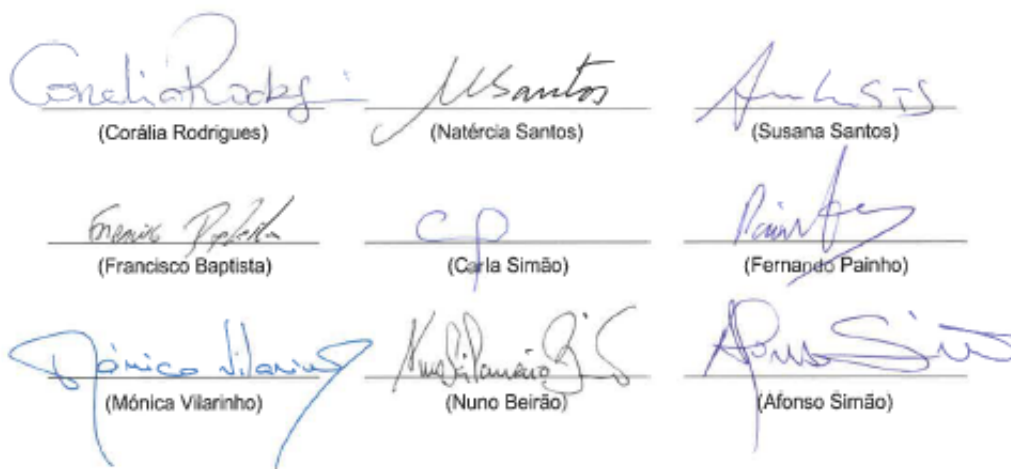 Corália Rodrig
M Santos
(Corália Rodrigues)
(Natércia Santos)
(Susana Santos)
Painho
(Francisco Baptista)
(Carla Simão)
(Fernando Painho)
Mónica Vilarinho
(Mónica Vilarinho)
(Nuno Beirão)
Afonso Simão
(Afonso Simão)